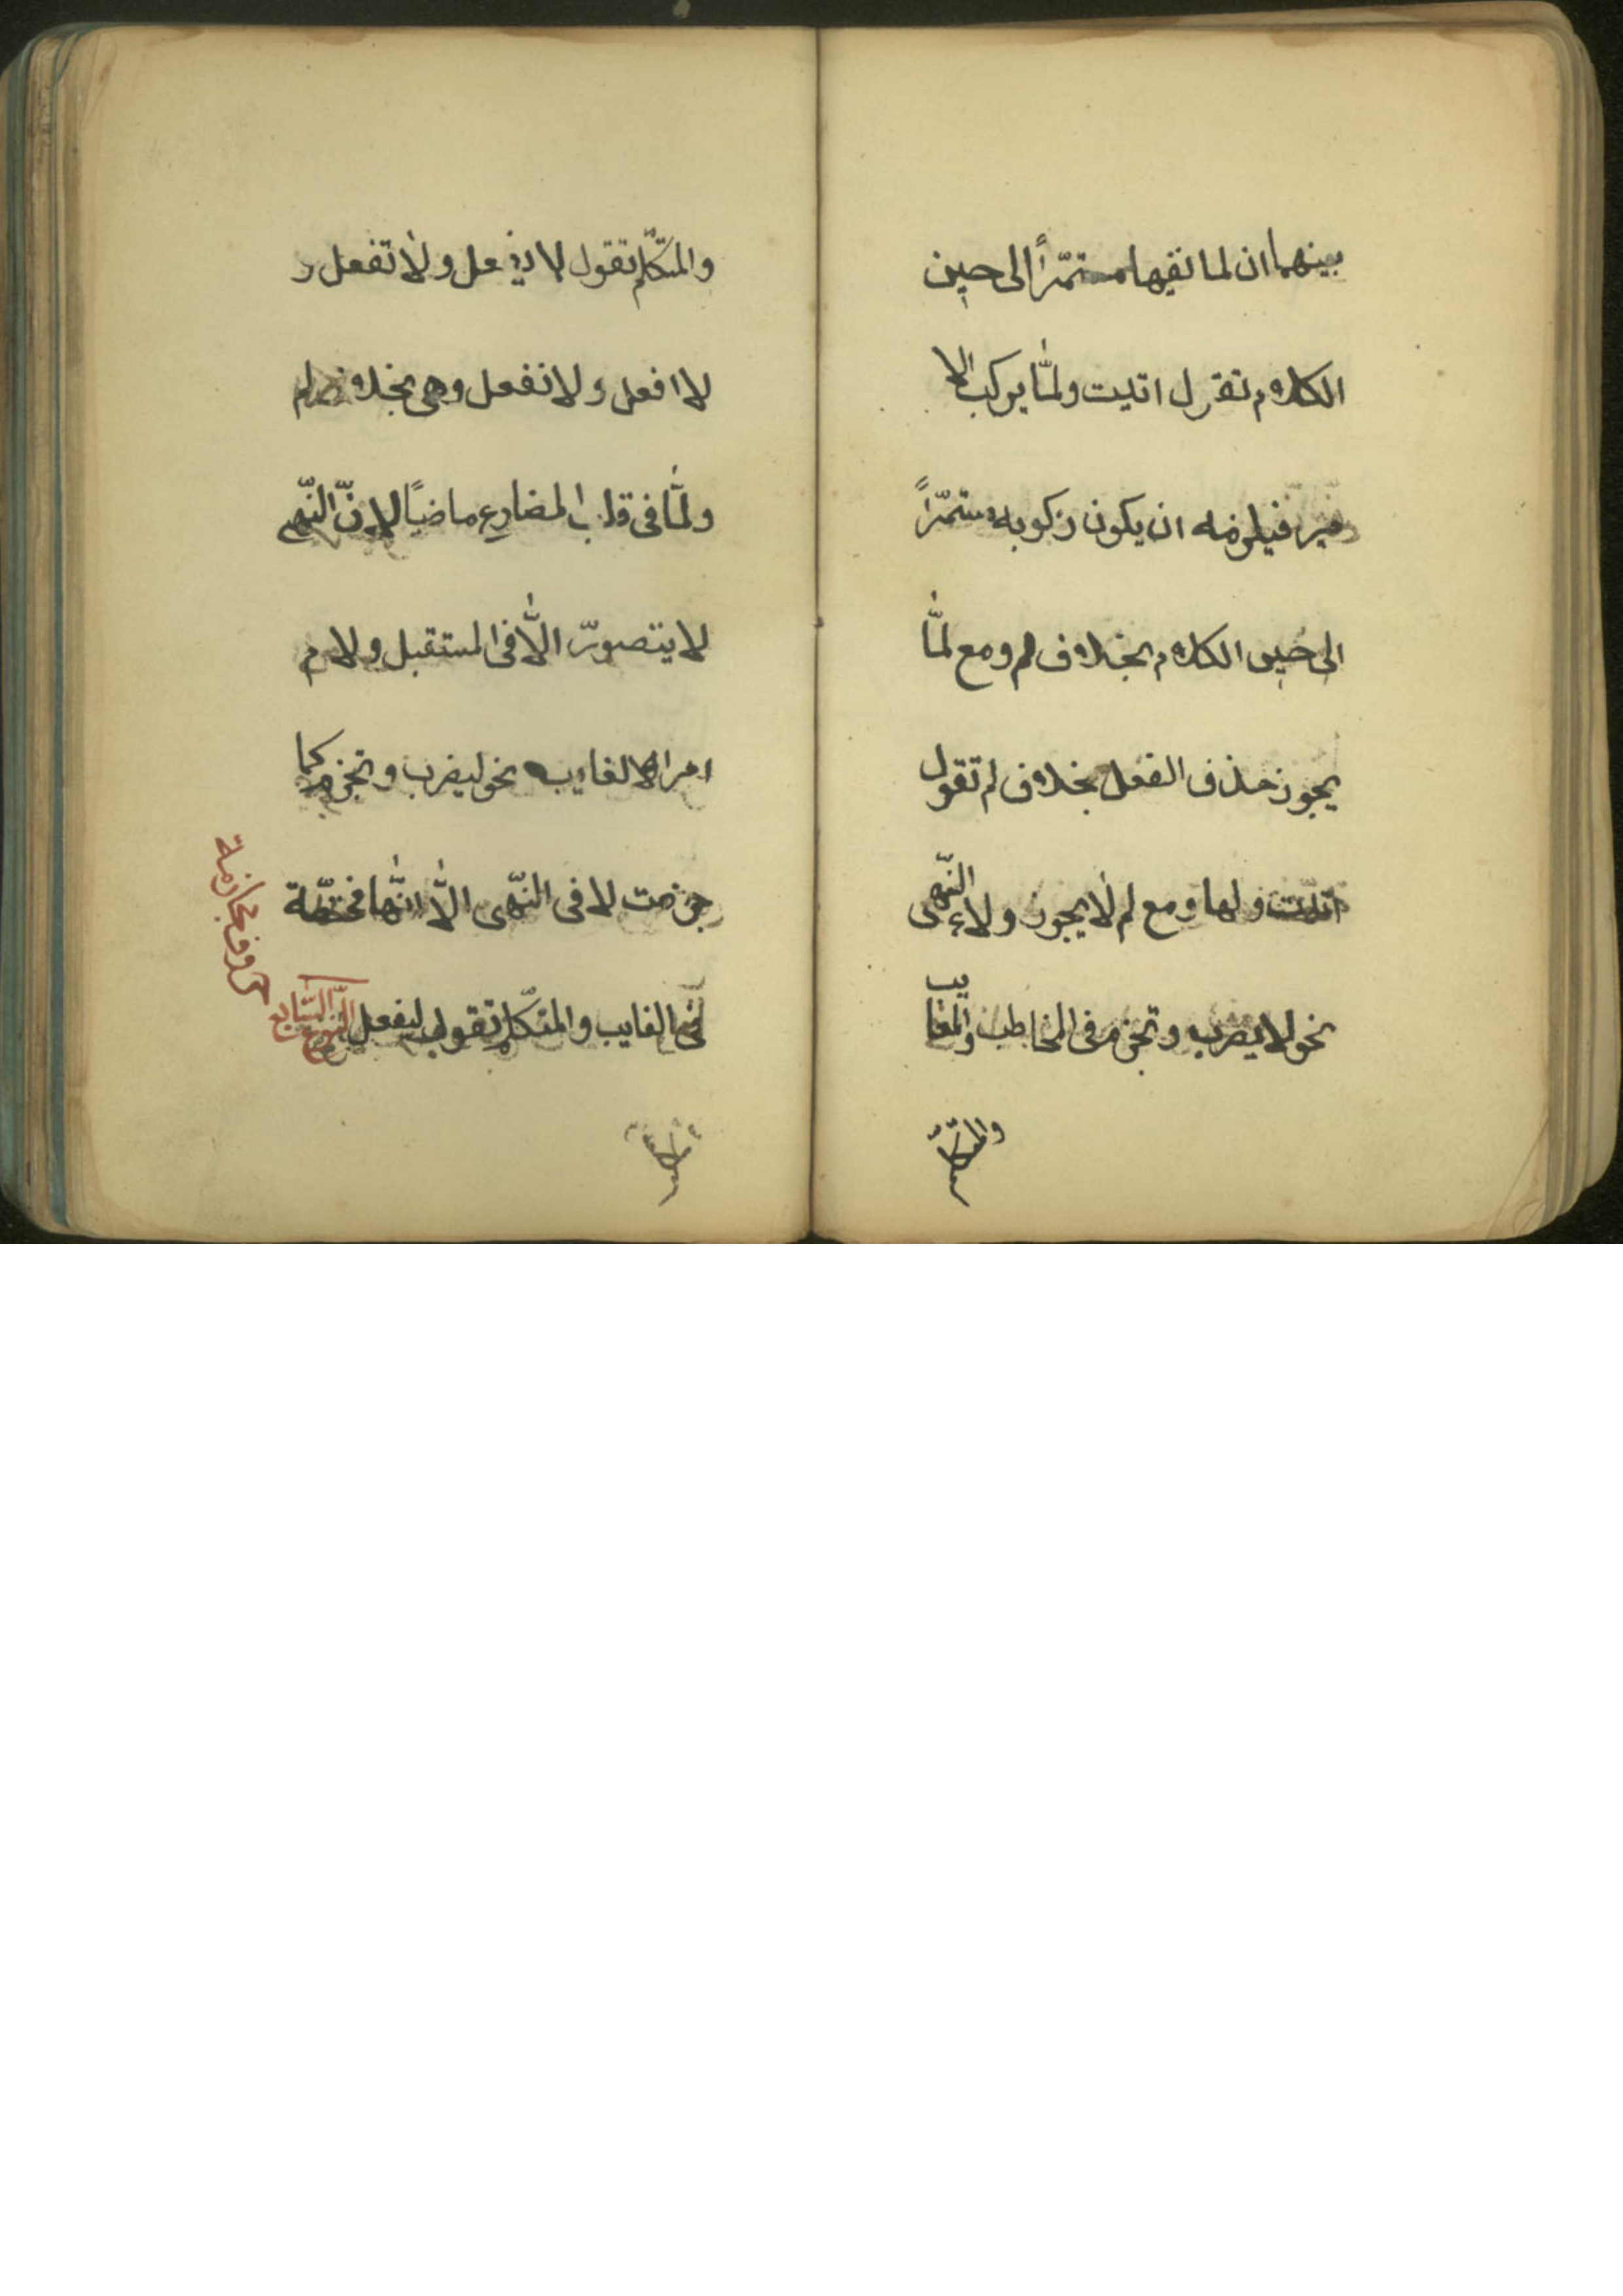 بينهما ان لما نفيها مستمّراً الى حين
الكلام تقول اتيت ولمّا يركب الا
مير فيلزمه ان يكون ركوبه مستمّراً
الى حين الكلام بخلاف لم ومع لمّا
يجوز حذف الفعل بخلاف لم تقول
اتيت ولما ومع لم لا يجوز ولاء النّهى
نحو لا يضرب وتجزم فى المخاطب والغايب
والمتكلّم
والمتكلّم تقول لا يفعل ولا تفعل و
لا افعل ولا نفعل وهى بخلاف لم
ولمّا فى قلب المضارع ماضيًا لانّ النّهى
لا يتصوّر الّا فى المستقبل ولام
امر الغايب نحو ليضرب وتجزم كما
جزمت لا فى النّهى الّا انّها مختصّة
فى الغايب والمتكلّم تقول ليفعل النّوع السّابع
حروف مجازمة